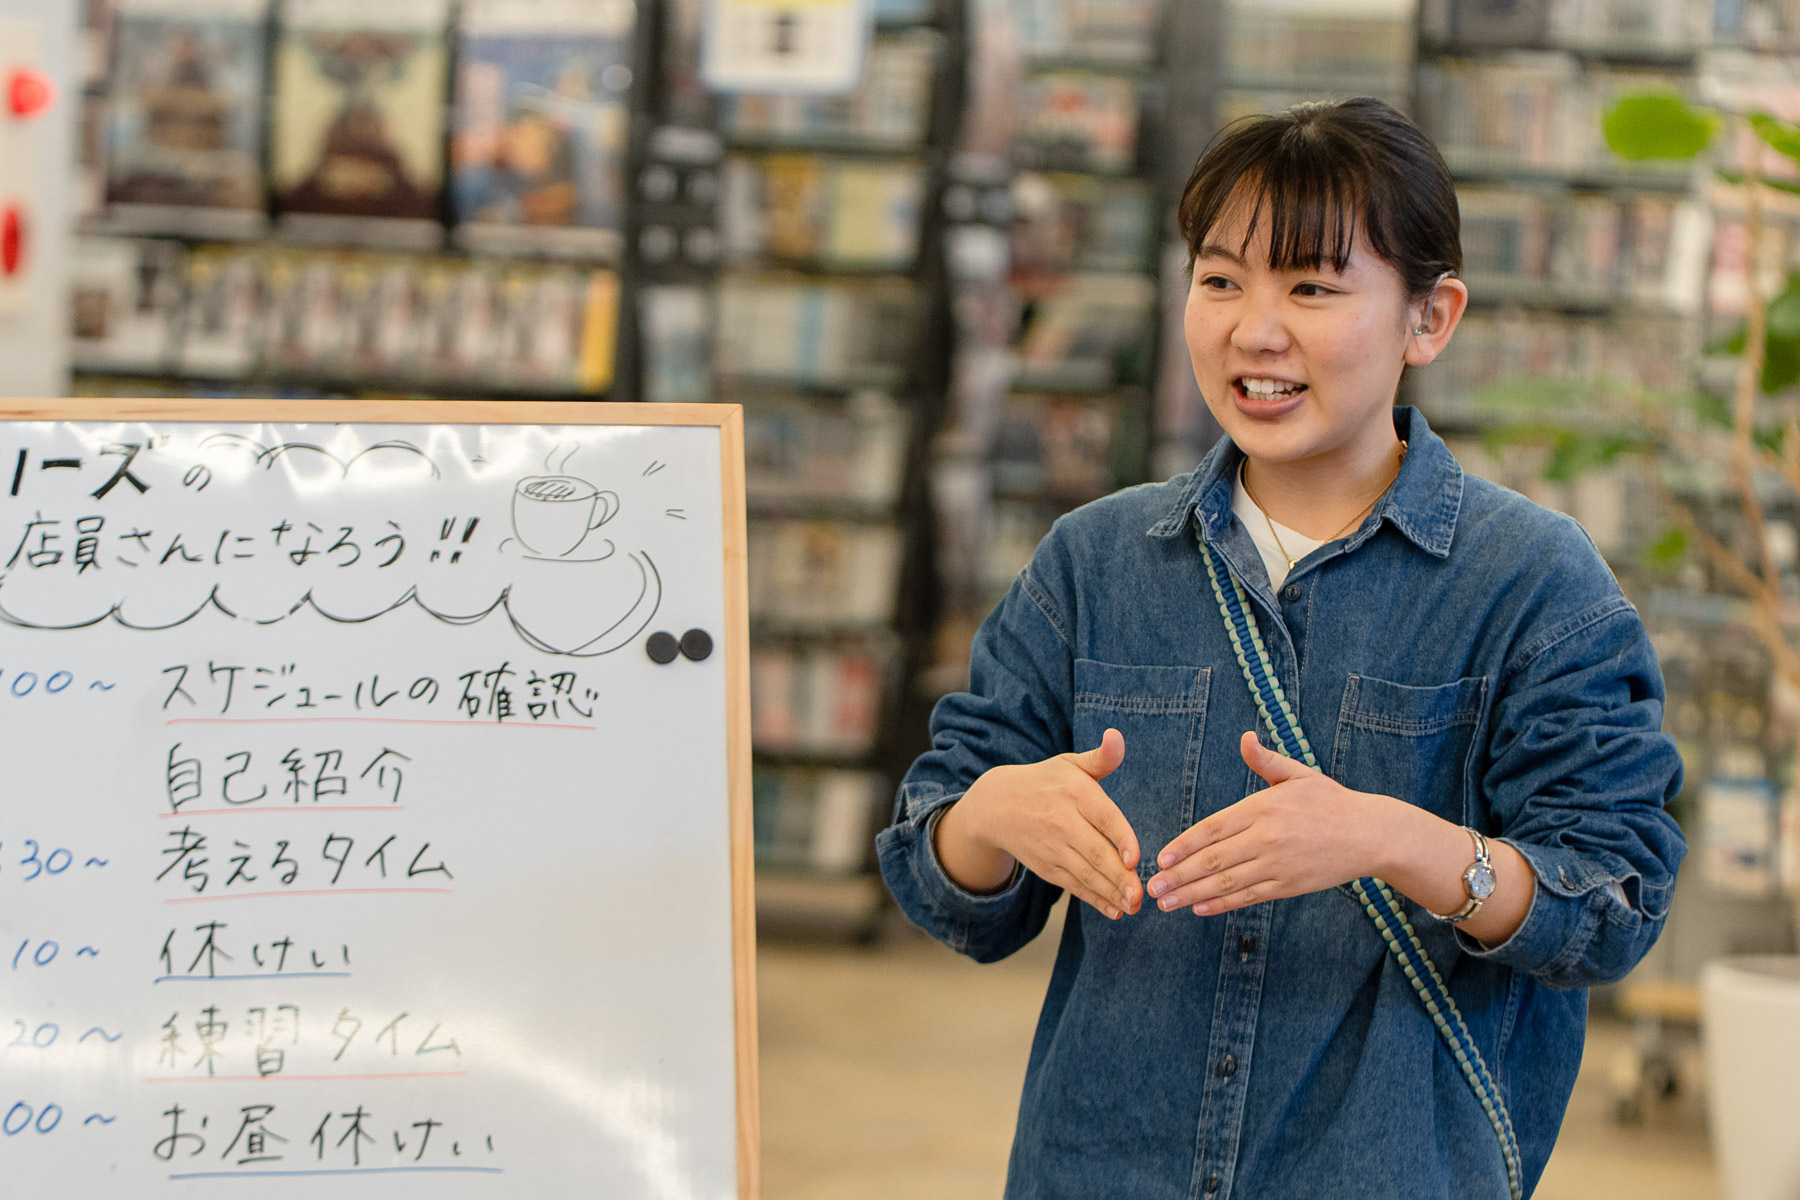 リーズの
店員さんになろう!!
:00～ スケジュールの確認
自己紹介
:30～ 考えるタイム
10～ 休けい
20～ 練習タイム
00～ お昼休けい